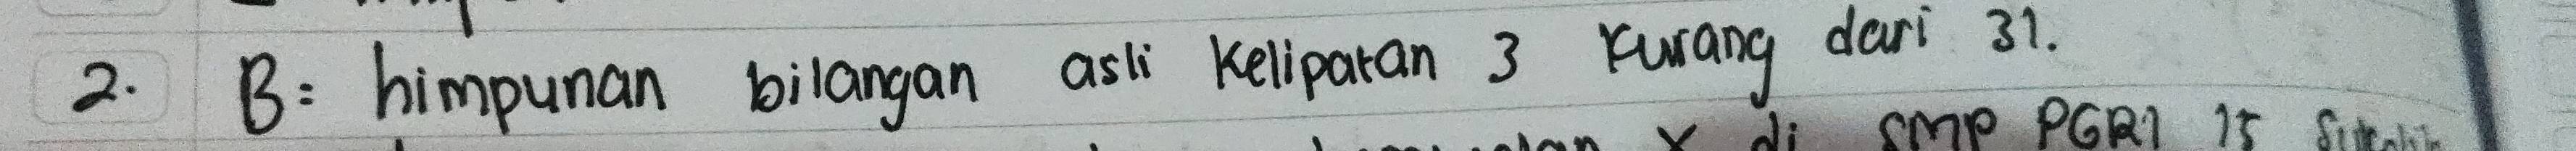 2. B = himpunan bilangan asli Kelipatan 3 Kurang dari 31.
x di SMP PGRI 15